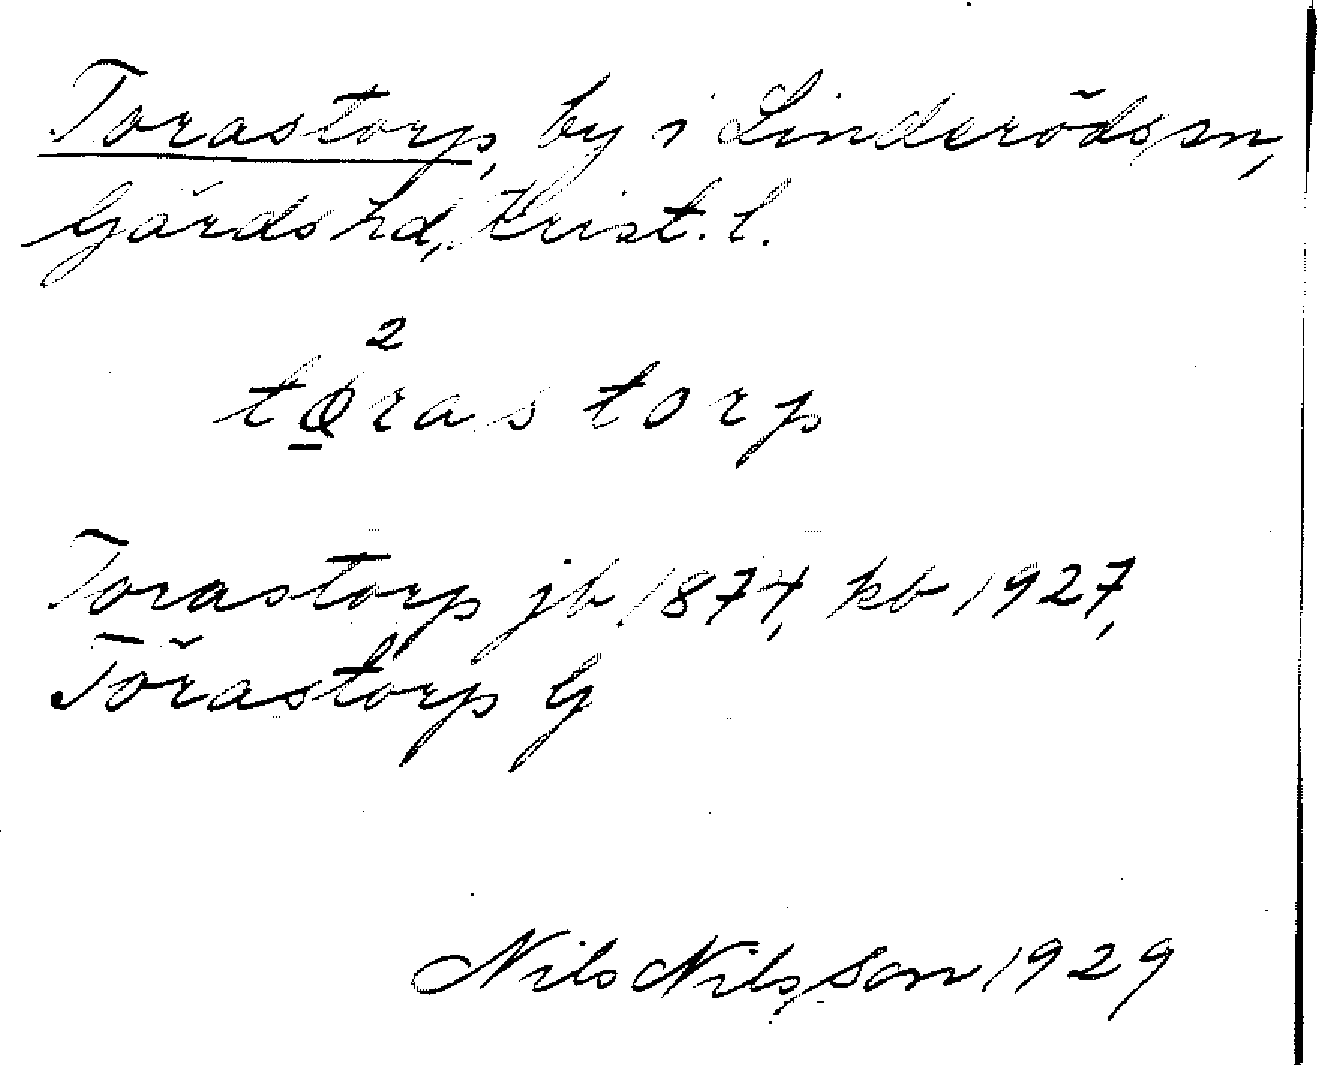 Torastorp, by i Linderöds sn,
Gärds hd, Krist. l.
2
tø̱rastorp
Torastorp jb 1874, kb 1927,
Törastorp G
Nils Nilsson 1929